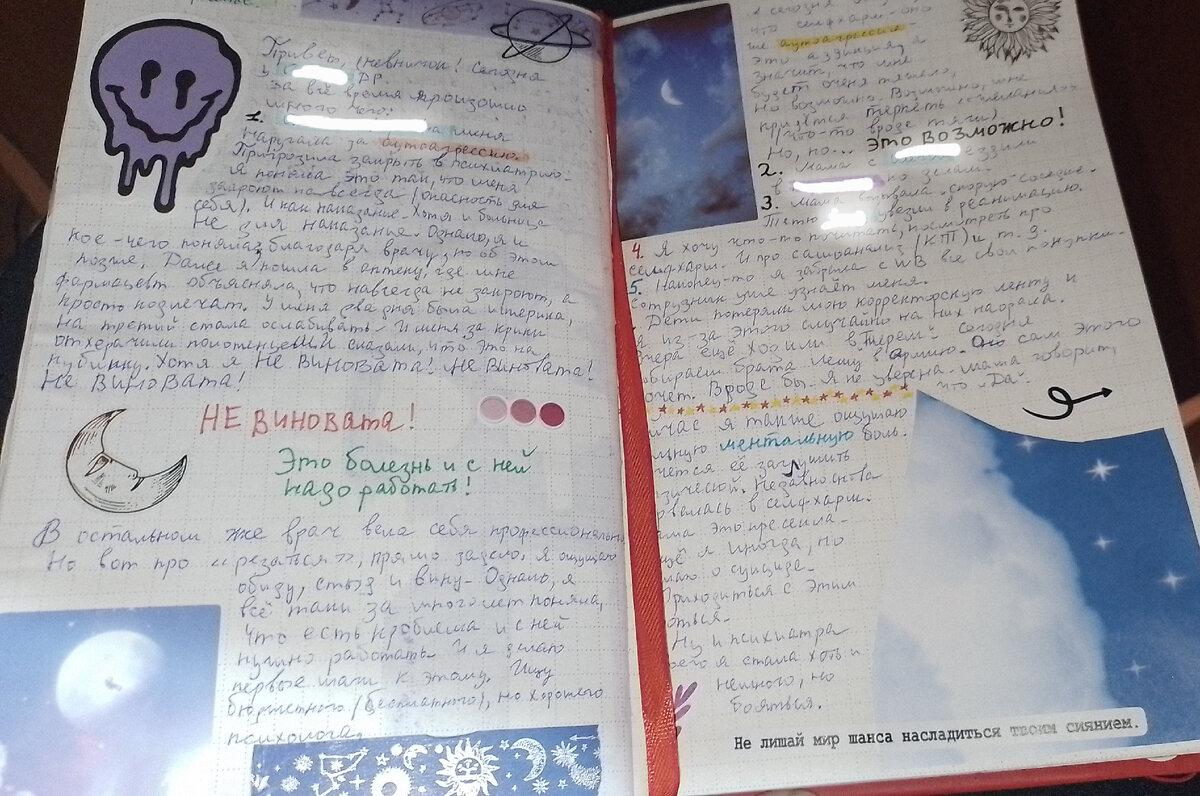 Привет, дневничок! Сегодня
у ДР.
За всё время произошло
много чего:
1. меня
наругала за аутоагрессию.
Пригрозила закрыть в психиатрию.
Я поняла это так, что меня
закроют навсегда (опасность для
себя). И как наказание. Хотя и больница
не для наказания. Однако, я и
кое-чего поняла благодаря врачу, но об этом
позже. Далее я пошла в аптеку, где мне
фармацевт объяснила, что навсегда не закроют, а
просто подлечат. У меня два дня была истерика,
на третий стала ослабивать. И меня за крики
отхерачили полотенцем и сказали, что это на
публику. Хотя я не виновата! Не виновата!
Не виновата!
Не виновата!
Это болезнь и с ней
надо работать!
В остальном же врач вела себя профессионально
Но вот про «резаться», прямо задело. Я ощущаю
обиду, стыд и вину. Однако, я
всё таки за много лет поняла,
что есть проблема и с ней
нужно работать. И я делаю
первые шаги к этому. Ищу
бюджетного (бесплатного), но хорошего
психолога.
я сегодня
что селфхарм - оно
же аутоагрессия -
это аддикция, а
значит, что мне
будет очень тяжело,
но возможно. Возможно, мне
придётся терпеть «желания»
что-то вроде тяги)
Но, но... Это возможно!
2. Мама с ездили
в по делам.
3. Мама вызвала «скорую» соседке.
Тётю увезли в реанимацию.
4. Я хочу что-то почитать, посмотреть про
селфхарм. И про самоанализ (КПТ) и т. д.
5. Наконец-то я забрала с WB все свои покупки.
Сотрудник уже узнаёт меня.
Дети потеряли мою корректорскую ленту и
я из-за этого случайно на них наорала.
Вчера ещё ходили в "Терем". Сегодня
собираем брата Лёшу в армию. Он сам этого
хочет. Вроде бы. Я не уверена. Мама говорит,
что "Да".
час я также ощущаю
льную ментальную боль.
чется её заглушить
зической. Недавно чуть
рвалась в селфхарм.
ма это пресекла.
щё я иногда, но
маю о суициде.
Приходиться с этим
оться.
Ну и психиатра
оего я стала хоть и
немного, но
бояться.
Не лишай мир шанса насладиться твоим сиянием.